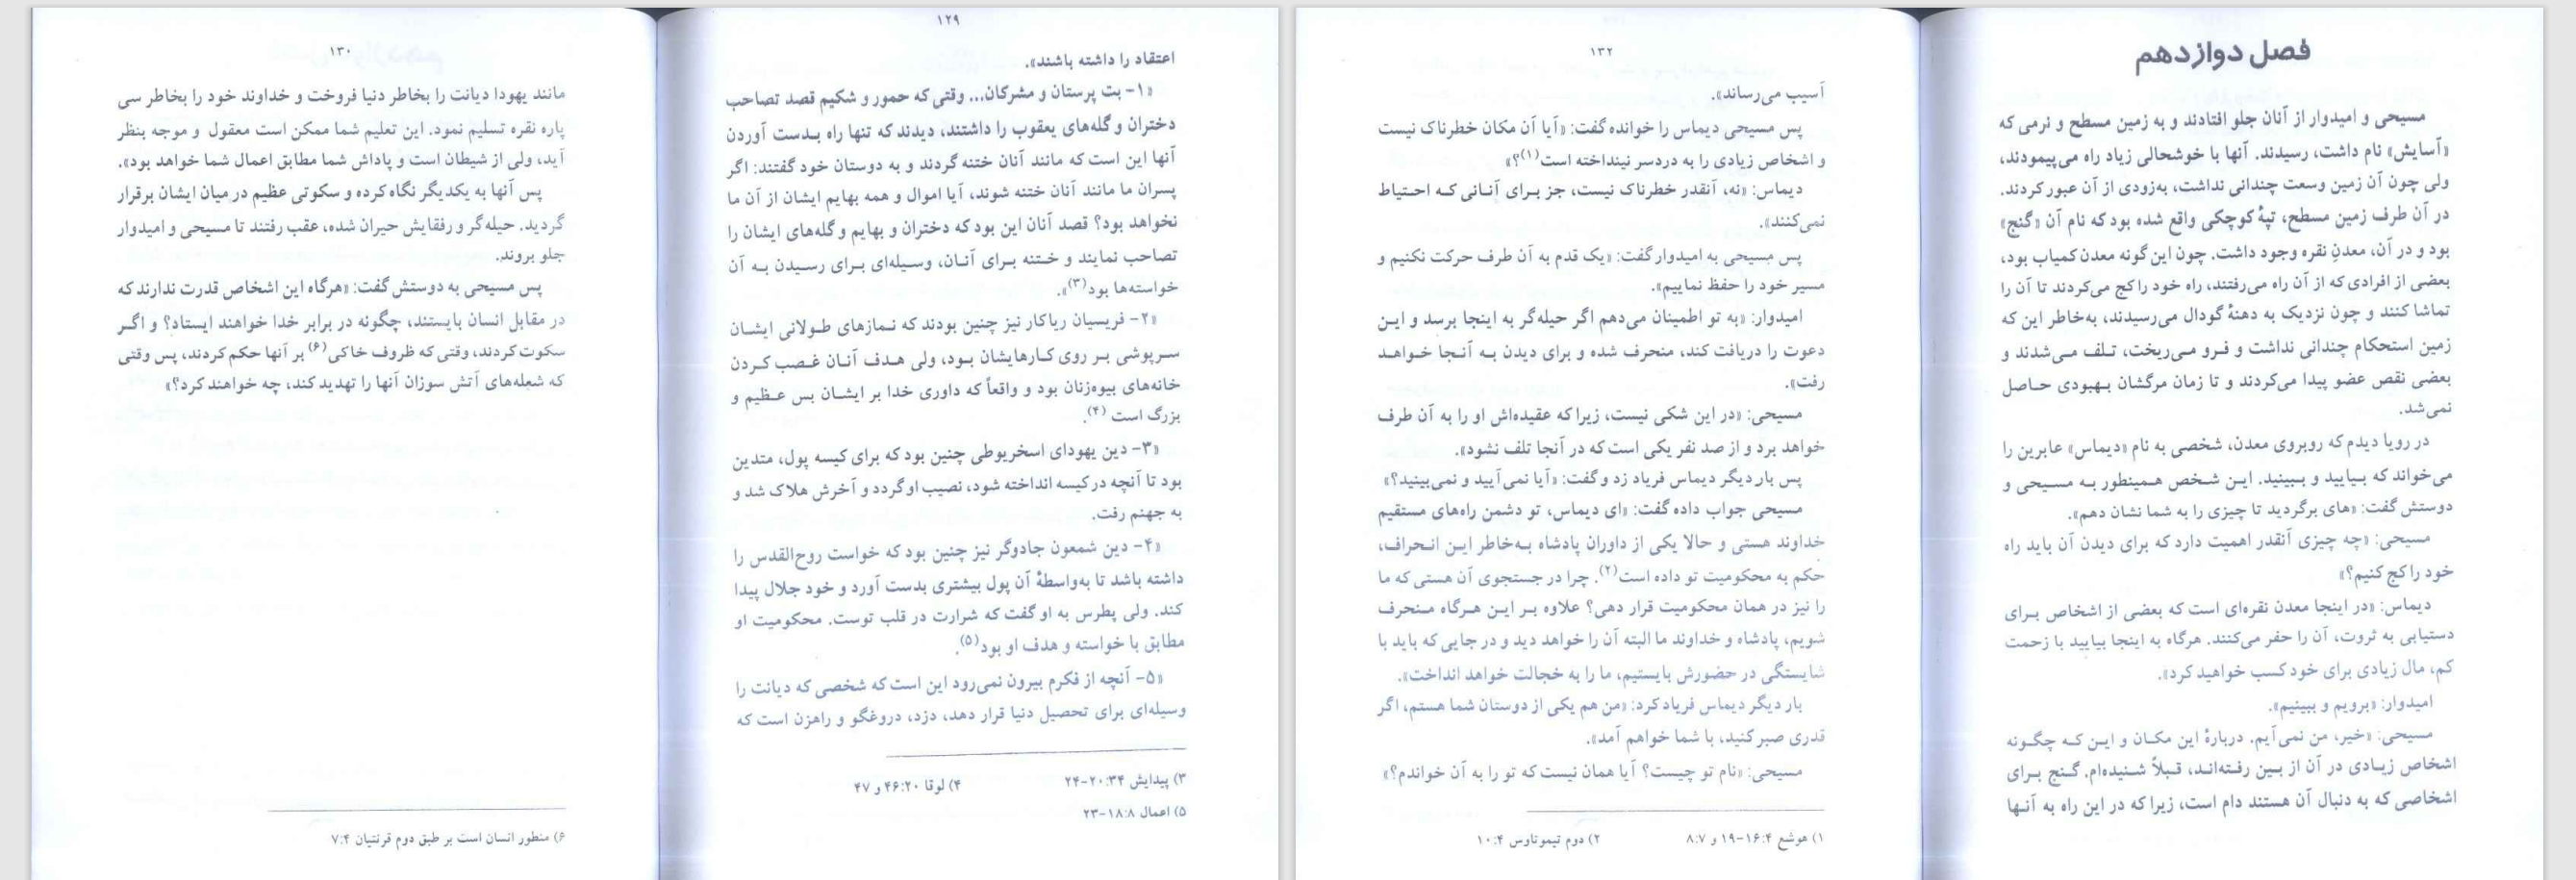 ۱۲۹
اعتقاد را داشته باشند».
«۱- بت پرستان و مشرکان... وقتی که حمور و شکیم قصد تصاحب
دختران و گله‌های یعقوب را داشتند، دیدند که تنها راه بـدست آوردن
آنها این است که مانند آنان ختنه گردند و به دوستان خود گفتند: اگر
پسران ما مانند آنان ختنه شوند، آیا اموال و همه بهایم ایشان از آن ما
نخواهد بود؟ قصد آنان این بود که دختران و بهایم و گله‌های ایشان را
تصاحب نمایند و خـتنه بـرای آنـان، وسـیله‌ای بـرای رسـیدن بـه آن
خواسته‌ها بود(۳)».
«۲- فریسیان ریاکار نیز چنین بودند که نـمازهای طـولانی ایشـان
سـرپوشی بـر روی کـارهایشان بـود، ولی هـدف آنـان غـصب کـردن
خانه‌های بیوه‌زنان بود و واقعاً که داوری خدا بر ایشـان بس عـظیم و
بزرگ است (۴).
«۳- دین یهودای اسخریوطی چنین بود که برای کیسه پول، متدین
بود تا آنچه در کیسه انداخته شود، نصیب او گردد و آخرش هلاک شد و
به جهنم رفت.
«۴- دین شمعون جادوگر نیز چنین بود که خواست روح‌القدس را
داشته باشد تا به‌واسطهٔ آن پول بیشتری بدست آورد و خود جلال پیدا
کند. ولی پطرس به او گفت که شرارت در قلب توست. محکومیت او
مطابق با خواسته و هدف او بود(۵).
«۵- آنچه از فکرم بیرون نمی‌رود این است که شخصی که دیانت را
وسیله‌ای برای تحصیل دنیا قرار دهد، دزد، دروغگو و راهزن است که
۳) پیدایش ۲۰:۳۴-۲۴ ۴) لوقا ۴۶:۲۰ و ۴۷
۵) اعمال ۱۸:۸-۲۳
۱۳۰
مانند یهودا دیانت را بخاطر دنیا فروخت و خداوند خود را بخاطر سی
پاره نقره تسلیم نمود. این تعلیم شما ممکن است معقول و موجه بنظر
آید، ولی از شیطان است و پاداش شما مطابق اعمال شما خواهد بود».
پس آنها به یکدیگر نگاه کرده و سکوتی عظیم در میان ایشان برقرار
گردید. حیله‌گر و رفقایش حیران شده، عقب رفتند تا مسیحی و امیدوار
جلو بروند.
پس مسیحی به دوستش گفت: «هرگاه این اشخاص قدرت ندارند که
در مقابل انسان بایستند، چگونه در برابر خدا خواهند ایستاد؟ و اگـر
سکوت کردند، وقتی که ظروف خاکی(۶) بر آنها حکم کردند، پس وقتی
که شعله‌های آتش سوزان آنها را تهدید کند، چه خواهند کرد؟»
۶) منظور انسان است بر طبق دوم قرنتیان ۷:۴
فصل دوازدهم
مسیحی و امیدوار از آنان جلو افتادند و به زمین مسطح و نرمی که
«آسایش» نام داشت، رسیدند. آنها با خوشحالی زیاد راه می‌پیمودند،
ولی چون آن زمین وسعت چندانی نداشت، به‌زودی از آن عبور کردند.
در آن طرف زمین مسطح، تپهٔ کوچکی واقع شده بود که نام آن «گنج»
بود و در آن، معدنِ نقره وجود داشت. چون این گونه معدن کمیاب بود،
بعضی از افرادی که از آن راه می‌رفتند، راه خود را کج می‌کردند تا آن را
تماشا کنند و چون نزدیک به دهنهٔ گودال می‌رسیدند، به‌خاطر این که
زمین استحکام چندانی نداشت و فـرو مـی‌ریخت، تـلف مـی‌شدند و
بعضی نقص عضو پیدا می‌کردند و تا زمان مرگشان بـهبودی حـاصل
نمی‌شد.
در رویا دیدم که روبروی معدن، شخصی به نام «دیماس» عابرین را
می‌خواند که بـیایید و بـبینید. ایـن شـخص هـمینطور بـه مسـیحی و
دوستش گفت: «های برگردید تا چیزی را به شما نشان دهم».
مسیحی: «چه چیزی آنقدر اهمیت دارد که برای دیدن آن باید راه
خود را کج کنیم؟»
دیماس: «در اینجا معدن نقره‌ای است که بعضی از اشخاص بـرای
دستیابی به ثروت، آن را حفر می‌کنند. هرگاه به اینجا بیایید با زحمت
کم، مال زیادی برای خود کسب خواهید کرد».
امیدوار: «برویم و ببینیم».
مسیحی: «خیر، من نمی‌آیم. دربارهٔ این مکـان و ایـن کـه چگـونه
اشخاص زیـادی در آن از بـین رفـته‌انـد، قـبلاً شـنیده‌ام. گـنج بـرای
اشخاصی که به دنبال آن هستند دام است، زیرا که در این راه به آنـها
۱۳۲
آسیب می‌رساند».
پس مسیحی دیماس را خوانده گفت: «آیا آن مکان خطرناک نیست
و اشخاص زیادی را به دردسر نینداخته است(۱)؟»
دیماس: «نه، آنقدر خطرناک نیست، جز بـرای آنـانی کـه احـتیاط
نمی‌کنند».
پس مسیحی به امیدوار گفت: «یک قدم به آن طرف حرکت نکنیم و
مسیر خود را حفظ نماییم».
امیدوار: «به تو اطمینان می‌دهم اگر حیله‌گر به اینجا برسد و ایـن
دعوت را دریافت کند، منحرف شده و برای دیدن بـه آنـجا خـواهـد
رفت».
مسیحی: «در این شکی نیست، زیرا که عقیده‌اش او را به آن طرف
خواهد برد و از صد نفر یکی است که در آنجا تلف نشود».
پس بار دیگر دیماس فریاد زد و گفت: «آیا نمی‌آیید و نمی‌بینید؟»
مسیحی جواب داده گفت: «ای دیماس، تو دشمن راه‌های مستقیم
خداوند هستی و حالا یکی از داوران پادشاه بـه‌خاطر ایـن انـحراف،
حکم به محکومیت تو داده است(۲). چرا در جستجوی آن هستی که ما
را نیز در همان محکومیت قرار دهی؟ علاوه بـر ایـن هـرگاه مـنحرف
شویم، پادشاه و خداوند ما البته آن را خواهد دید و در جایی که باید با
شایستگی در حضورش بایستیم، ما را به خجالت خواهد انداخت».
بار دیگر دیماس فریاد کرد: «من هم یکی از دوستان شما هستم، اگر
قدری صبر کنید، با شما خواهم آمد».
مسیحی: «نام تو چیست؟ آیا همان نیست که تو را به آن خواندم؟»
۱) هوشع ۱۶:۴-۱۹ و ۸:۷ ۲) دوم تیموتاوس ۱۰:۴